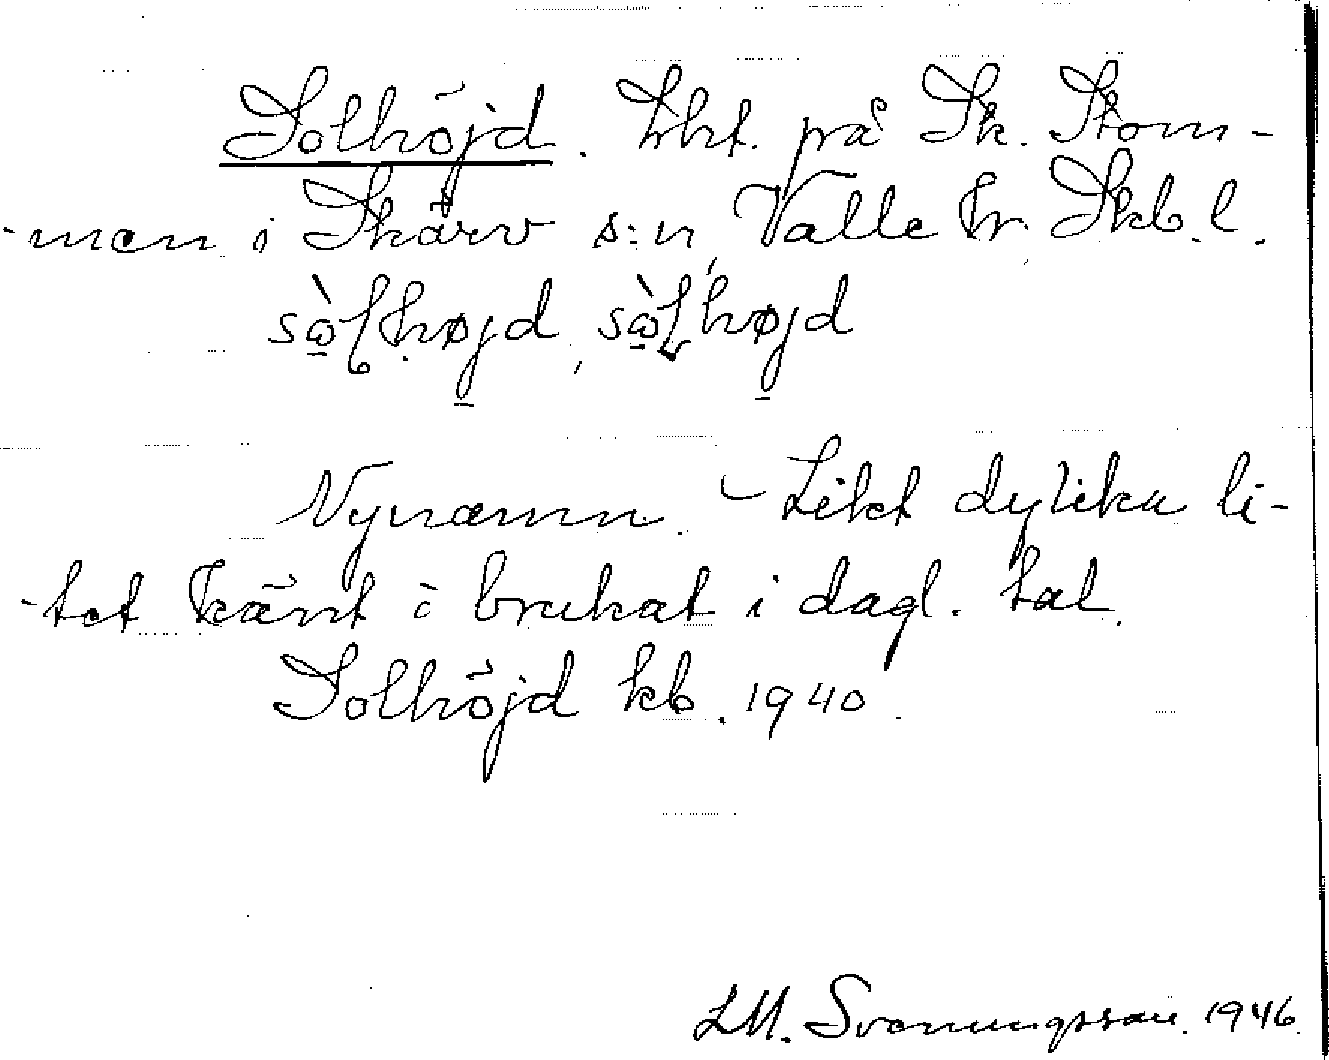 Solhöjd. Lht. på Sk. Stom-
-men i Skärv s:n, Valle hr. Skb. l.
sò̤lhøjd, sò̤lhøjd
Nynamn. – Likt dylika li-
-tet känt o brukat i dagl. tal.
Solhöjd kb. 1940.
LM. Svenungsson. 1946.